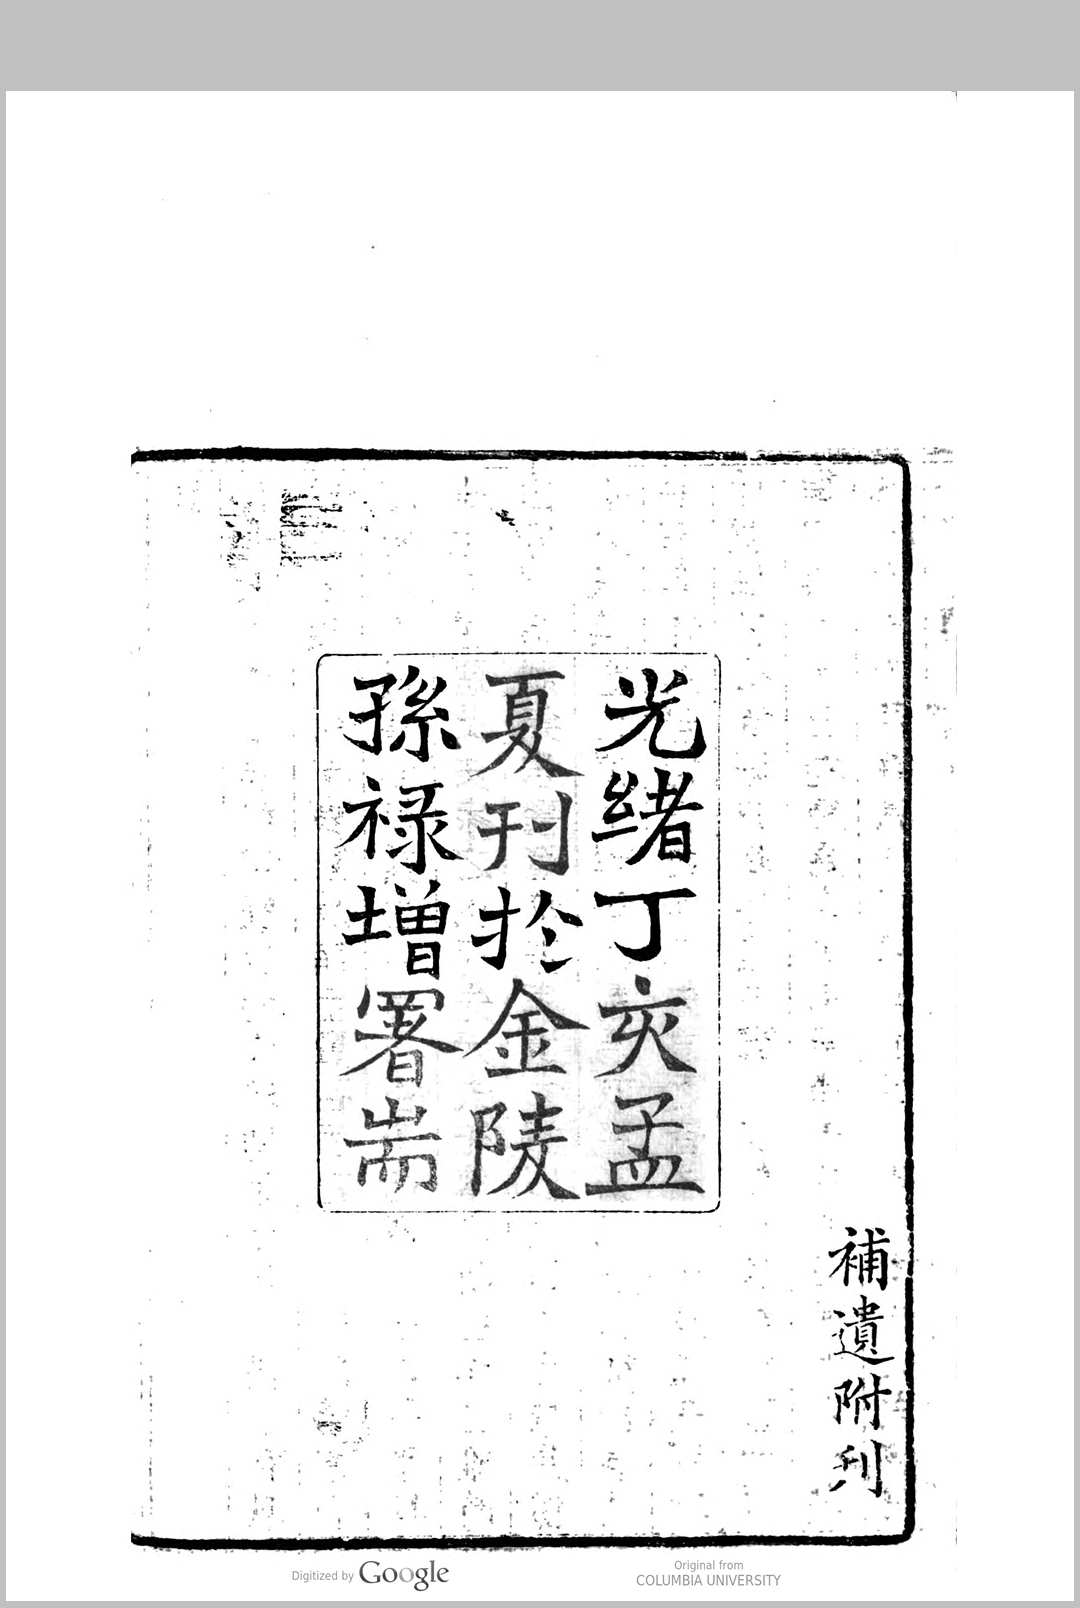 光緒丁亥孟
夏刊於金陵
孫祿增署耑
補遺附刋
Digitized by Google
Original from
COLUMBIA UNIVERSITY